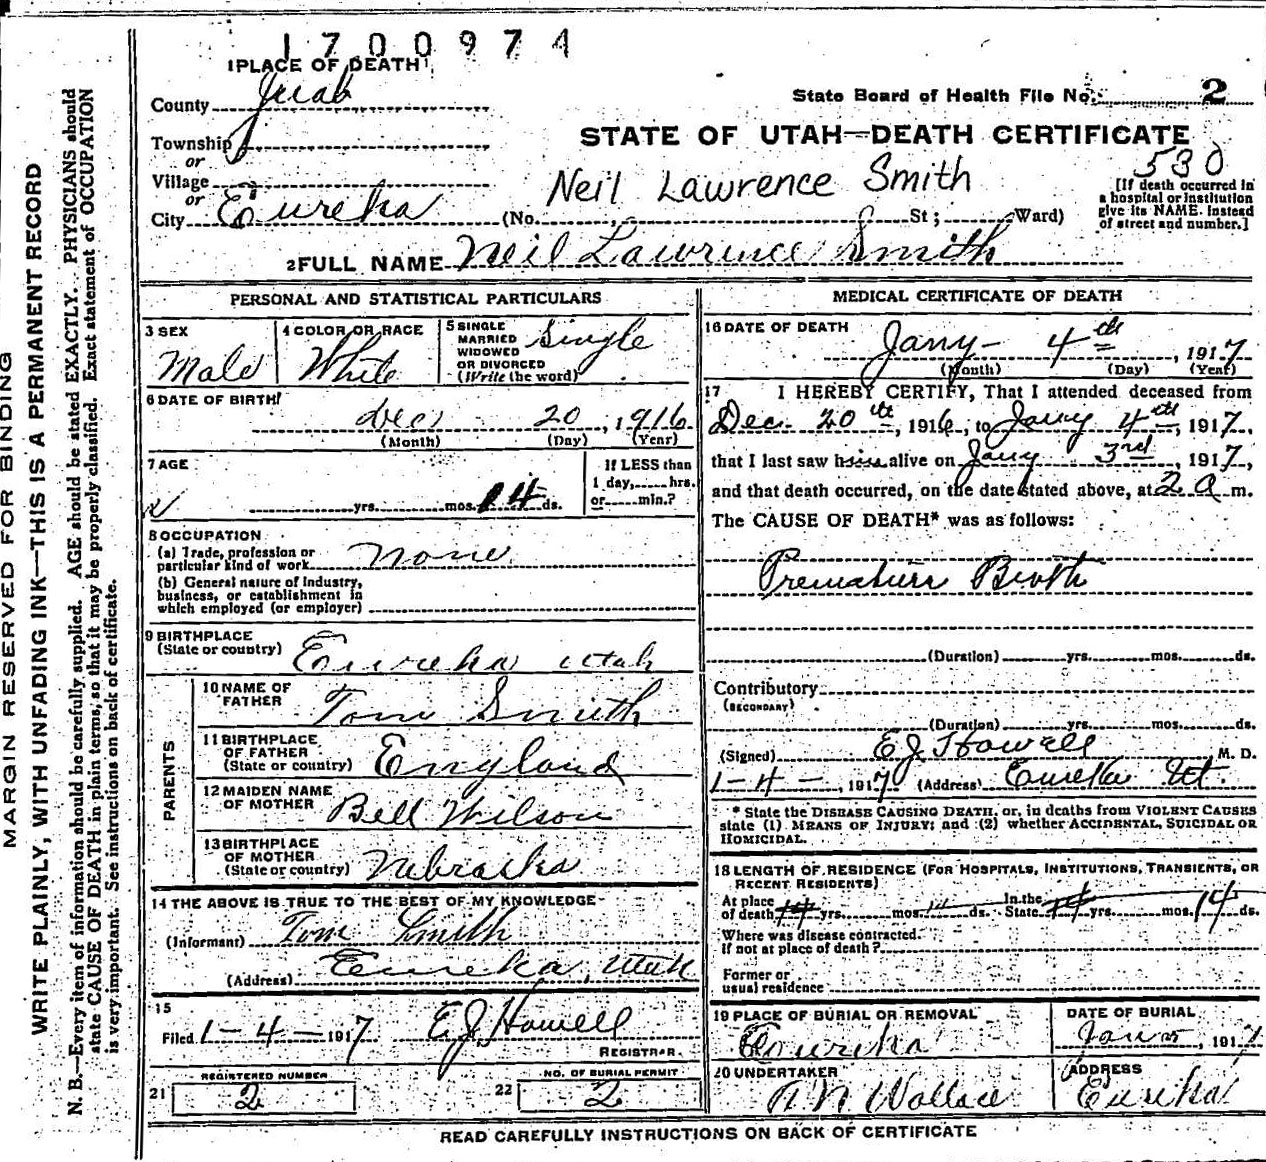 1700974
1 PLACE OF DEATH
County Juab
State Board of Health File No. 2
Township
or
Village
or
City Eureka
STATE OF UTAH—DEATH CERTIFICATE
530
Neil Lawrence Smith
(No. St; Ward)
[If death occurred in
a hospital or institution
give its NAME. instead
of street and number.]
2 FULL NAME Neil Lawrence Smith
PERSONAL AND STATISTICAL PARTICULARS
3 SEX
Male
4 COLOR OR RACE
White
5 SINGLE
MARRIED
WIDOWED
OR DIVORCED
(Write the word)
Single
6 DATE OF BIRTH
Dec 20, 1916
(Month) (Day) (Year)
7 AGE
yrs. mos. 14 ds.
If LESS than
1 day, hrs.
or min.?
8 OCCUPATION
(a) Trade, profession or
particular kind of work None
(b) General nature of Industry,
business, or establishment in
which employed (or employer)
9 BIRTHPLACE
(State or country) Eureka Utah
PARENTS
10 NAME OF
FATHER Tom Smith
11 BIRTHPLACE
OF FATHER
(State or country) England
12 MAIDEN NAME
OF MOTHER Bell Wilson
13 BIRTHPLACE
OF MOTHER
(State or country) Nebraska
14 THE ABOVE IS TRUE TO THE BEST OF MY KNOWLEDGE
(Informant) Tom Smith
(Address) Eureka, Utah
15
Filed 1-4-1917 E J Howell
REGISTRAR.
REGISTERED NUMBER
21 2
NO. OF BURIAL PERMIT
22 2
MEDICAL CERTIFICATE OF DEATH
16 DATE OF DEATH
Jany- 4th, 1917
(Month) (Day) (Year)
17 I HEREBY CERTIFY, That I attended deceased from
Dec. 20th, 1916, to Jany 4th, 1917,
that I last saw him alive on Jany 3rd, 1917,
and that death occurred, on the date stated above, at 2 a m.
The CAUSE OF DEATH* was as follows:
Premature Birth
(Duration) yrs. mos. ds.
Contributory
(SECONDARY)
(Duration) yrs. mos. ds.
(Signed) E J Howell M. D.
1-4-, 1917 (Address) Eureka Ut.
* State the DISEASE CAUSING DEATH, or, in deaths from VIOLENT CAUSES
state (1) MEANS OF INJURY; and (2) whether ACCIDENTAL, SUICIDAL OR
HOMICIDAL.
18 LENGTH OF RESIDENCE (FOR HOSPITALS, INSTITUTIONS, TRANSIENTS, OR
RECENT RESIDENTS)
At place In the
of death 14 yrs. mos. ds. State 14 yrs. mos. 14 ds.
Where was disease contracted.
If not at place of death?
Former or
usual residence
19 PLACE OF BURIAL OR REMOVAL
Eureka
DATE OF BURIAL
Jan 5, 1917
20 UNDERTAKER
A N Wallace
ADDRESS
Eureka
READ CAREFULLY INSTRUCTIONS ON BACK OF CERTIFICATE
MARGIN RESERVED FOR BINDING
WRITE PLAINLY, WITH UNFADING INK—THIS IS A PERMANENT RECORD
N. B.—Every item of information should be carefully supplied. AGE should be stated EXACTLY. PHYSICIANS should
state CAUSE OF DEATH in plain terms, so that it may be properly classified. Exact statement of OCCUPATION
is very important. See instructions on back of certificate.